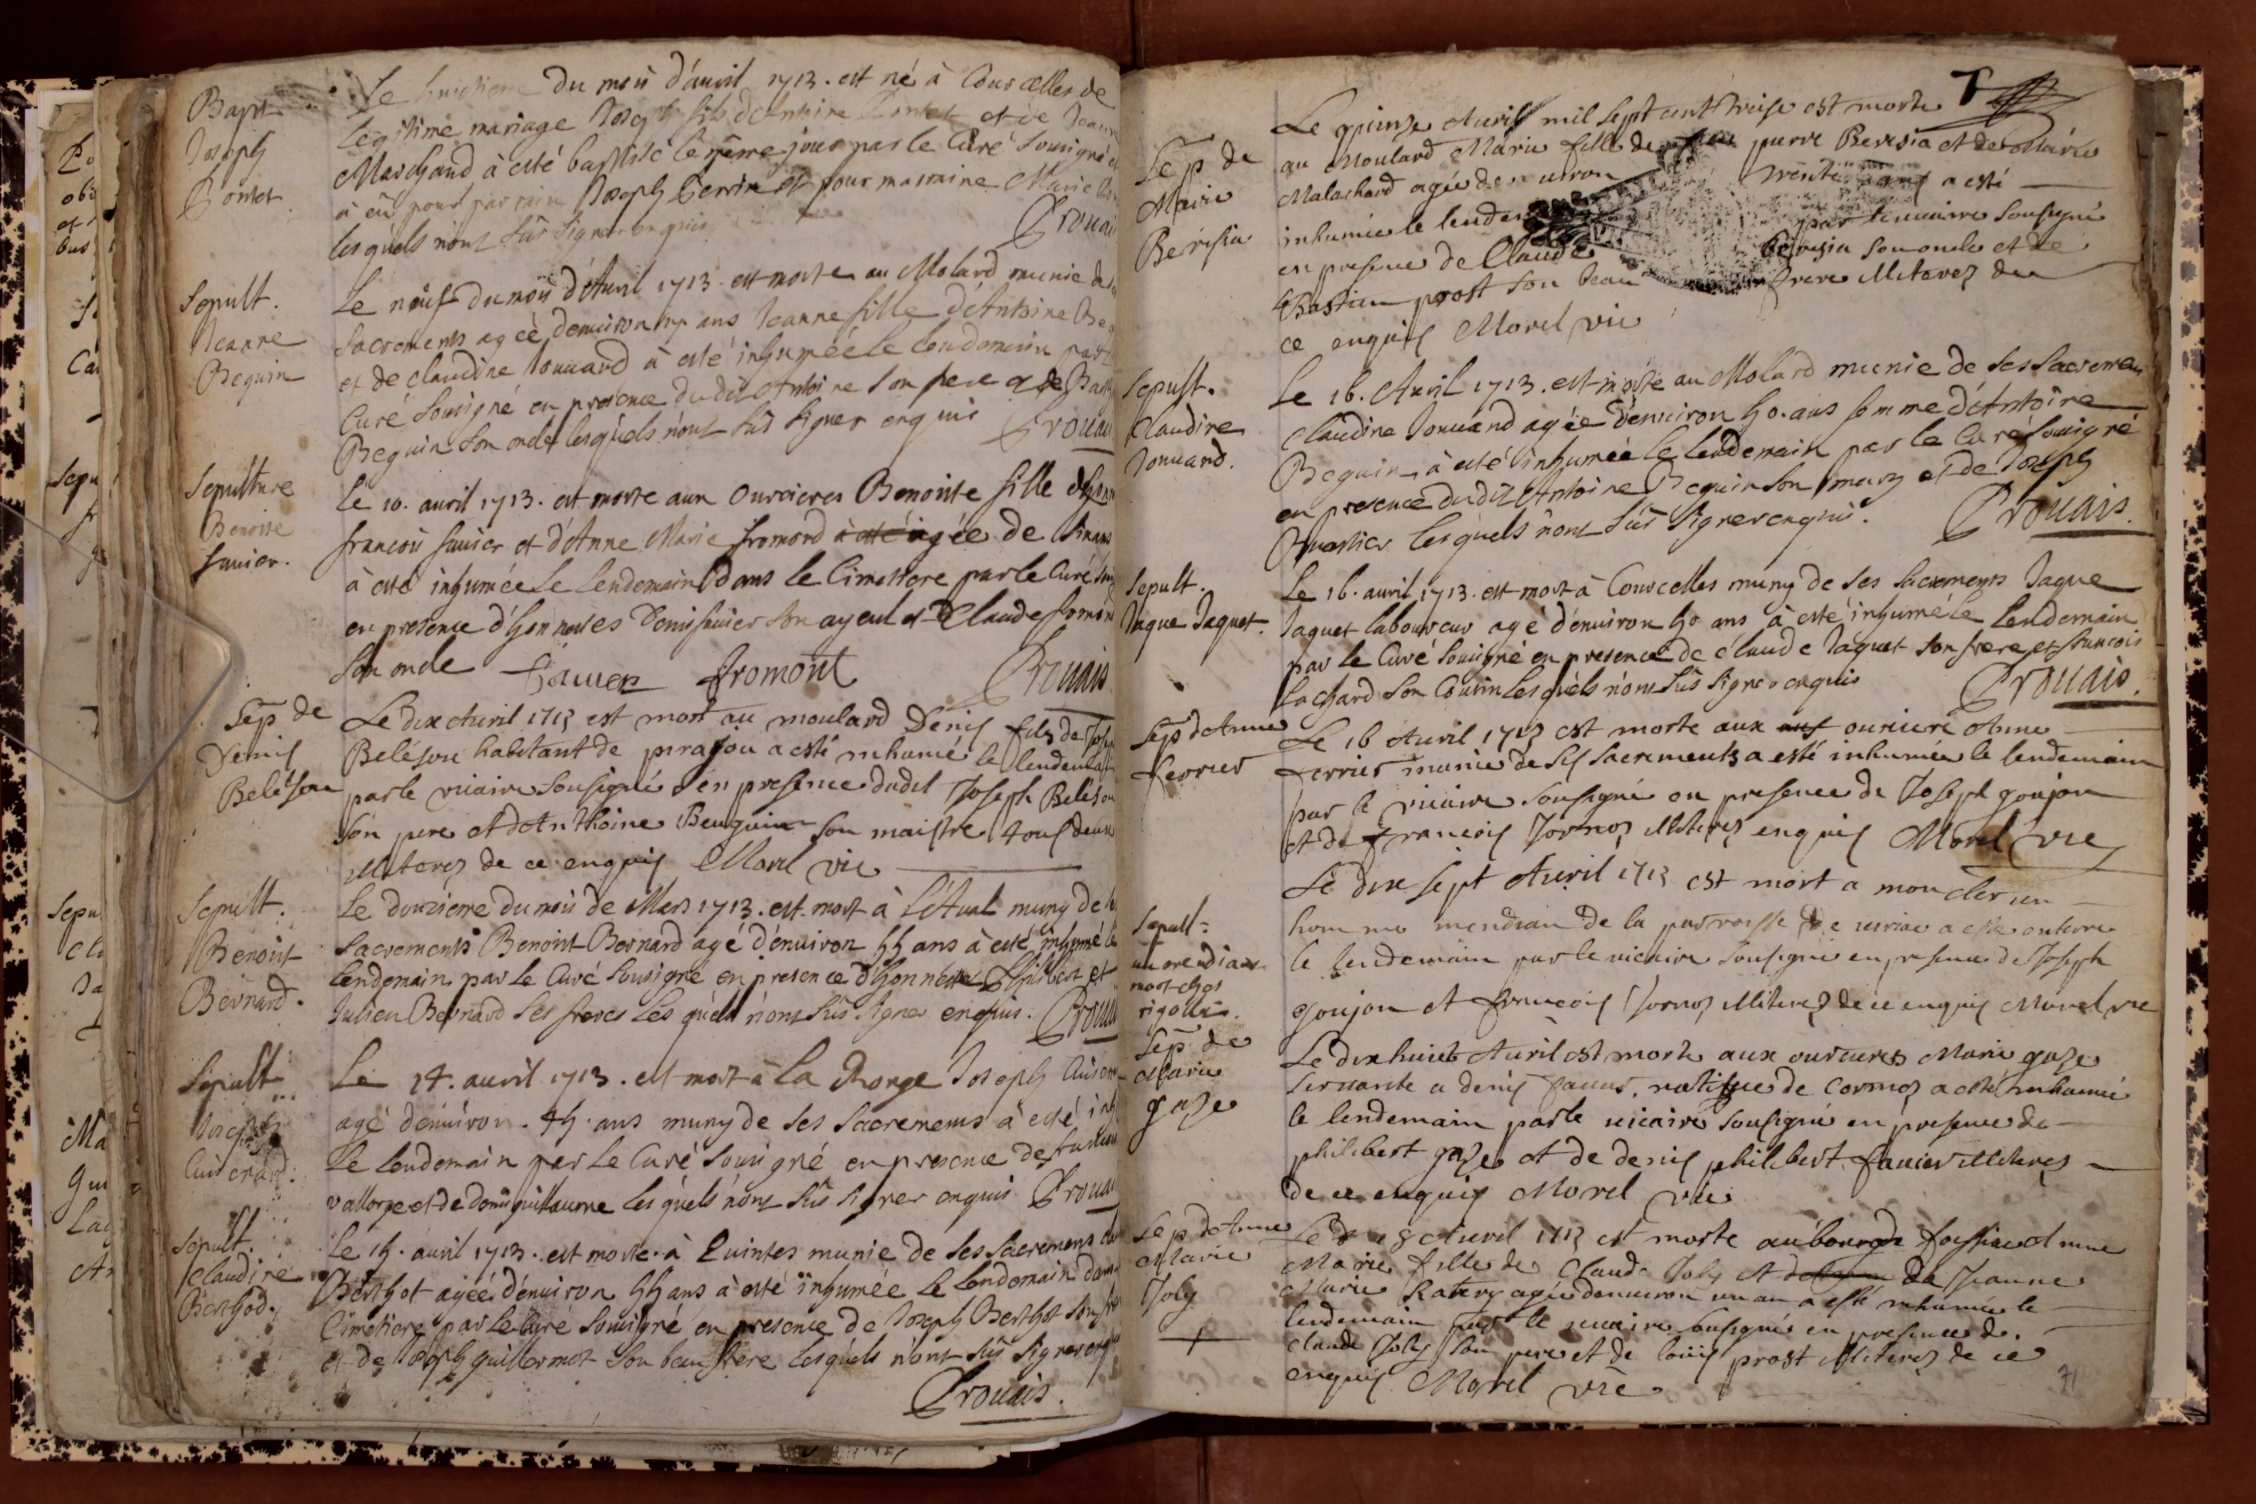 Bapt
Joseph
Le huictieme du mois d'avril 1713. est né à Courcelles de
legitime mariage Joseph fils d'Antoine et de Jeanne
Marchand à esté baptisé le même jour par le Curé sousigné
à eü pour parrain Joseph Perrin et pour marraine Marie
lesquels n'ont sûs signer enquis
Prouais
Sepult.
Jeanne
Beguin
Le neuf du mois d'Avril 1713. est morte au Molard munie de
sacrements agéé d'enuiron ans Jeanne fille d'Antoine
et de claudine Jouuard à esté inhuméé le lendemain par
Curé sousigné en presence dudit Antoine son pere et de
Beguin son oncle lesquels n'ont sûs signer enquis Prouais
Sepulture
Benoite
fauier.
Le 10. auril 1713. est morte aux Ouroieres Benoite fille
francois fauier et d'Anne Marie fromond agée de
à esté inhumée le lendemain dans le Cimettere par le Curé
en presence d'honnestes Denis fauier son ayeul et Claude fromond
son oncle fauier fromont Prouais
Sep de
Denis
Beléson
Le dix Auril 1713 est mort au moulard Denis fils de
Beléson habitant de pirajou a esté inhumé le lendemain
par le vicaire sousigné en presence dudit Joseph Beléson
son pere et d'Anthoine Beuguin son maistre tous deux
illiterez de ce enquis Morel vic
Sepult.
Benoit
Bernard.
Le douzieme du mois de Mars 1713. est mort à L'Aual muny de
sacrements Benoit Bernard agé d'enuiron 55 ans à esté inhumé le
lendemain par le Curé sousigné en presence d'honnestes Philibert et
Julien Bernard ses freres lesquels n'ont sûs signer enquis. Prouais
Sepult
Joseph
Cuiserard.
Le 14. auril 1713. est mort à la Ronge Joseph
agé d'enuiron. 45. ans muny de ses sacrements à esté
le lendemain par le Curé sousigné en presence de
vallorge et de Denis guillaume lesquels n'ont sûs signer enquis Prouais
Sepult.
Claudine
Berthod.
Le 15. auril 1713. est morte à Quintes munie de ses sacremens
Berthot agéé d'enuiron 55 ans à esté inhumée le lendemain
Cimetiere par le Curé sousigné en presence de Joseph Berthot son
et de Joseph guillermot son beau frere lesquels n'ont sûs signer
Prouais.
Sep de
Marie
Beresia
Le quinze Auril mil sept cent treise est morte
au Moulard Marie fille de pierre Beresia et de Marie
Malachard agée de trente ans a esté
inhumée le par le vicaire sousigné
en presence de Claude Beresia son oncle et de
Bastian prost son beau frere illiterez de
ce enquis Morel vic
Sepult.
Claudine
Jouuard.
Le 16. Auril 1713. est morte au Molard munie de ses sacremens
Claudine Jouuand agéé d'enuiron 50. ans femme d'Antoine
Beguin à esté inhuméé le lendemain par le Curé sousigné
en presence dudit Antoine Beguin son mary et de Joseph
lesquels n'ont sûs signer enquis. Prouais.
Sepult.
Jaque Jaquet.
Le 16. auril 1713. est mort à Courcelles muny de ses sacrements Jaque
Jaquet laboureur agé d'enuiron 50 ans à esté inhumé le lendemain
par le Curé sousigné en presence de claude Jaquet son frere et francois
Lachard son Cousin lesquels n'ont sûs signer enquis Prouais.
Sep d'Anne
ferrier
Le 16 Auril 1713 est morte aux ouriere Anne
ferrier munie de ses sacrements a esté inhumée le lendemain
par le vicaire sousigné en presence de Joseph goujon
et de francois Jornoz illiterez enquis Morel vic
Sepult.
un mendiant
mort ches
Le dix sept Auril 1713 est mort a un
homme mendian de la parroisse de a esté enterré
le lendemain par le vicaire sousigné en presence de Joseph
goujon et francois Jornoz illiterez de ce enquis Morel vic
Sep de
Marie
gaze
Le dix huict Auril est morte aux ourieres Marie gaze
seruante a denis fauier, natifue de Cormoz a esté inhumée
le lendemain par le vicaire sousigné en presence de
philibert gaze et de denis philibert fauier illiterez
de ce enquis Morel vic
Sep d'Anne
Marie
Joly
Le 18 Auril 1713 est morte au bourg Anne
Marie fille de Claude Joly et de Jeanne
Marie agée d'enuiron un an a esté inhumée le
lendemain par le vicaire sousigné en presence de
claude Joly son pere et de loüis prost illiterez de ce
enquis Morel vic
71